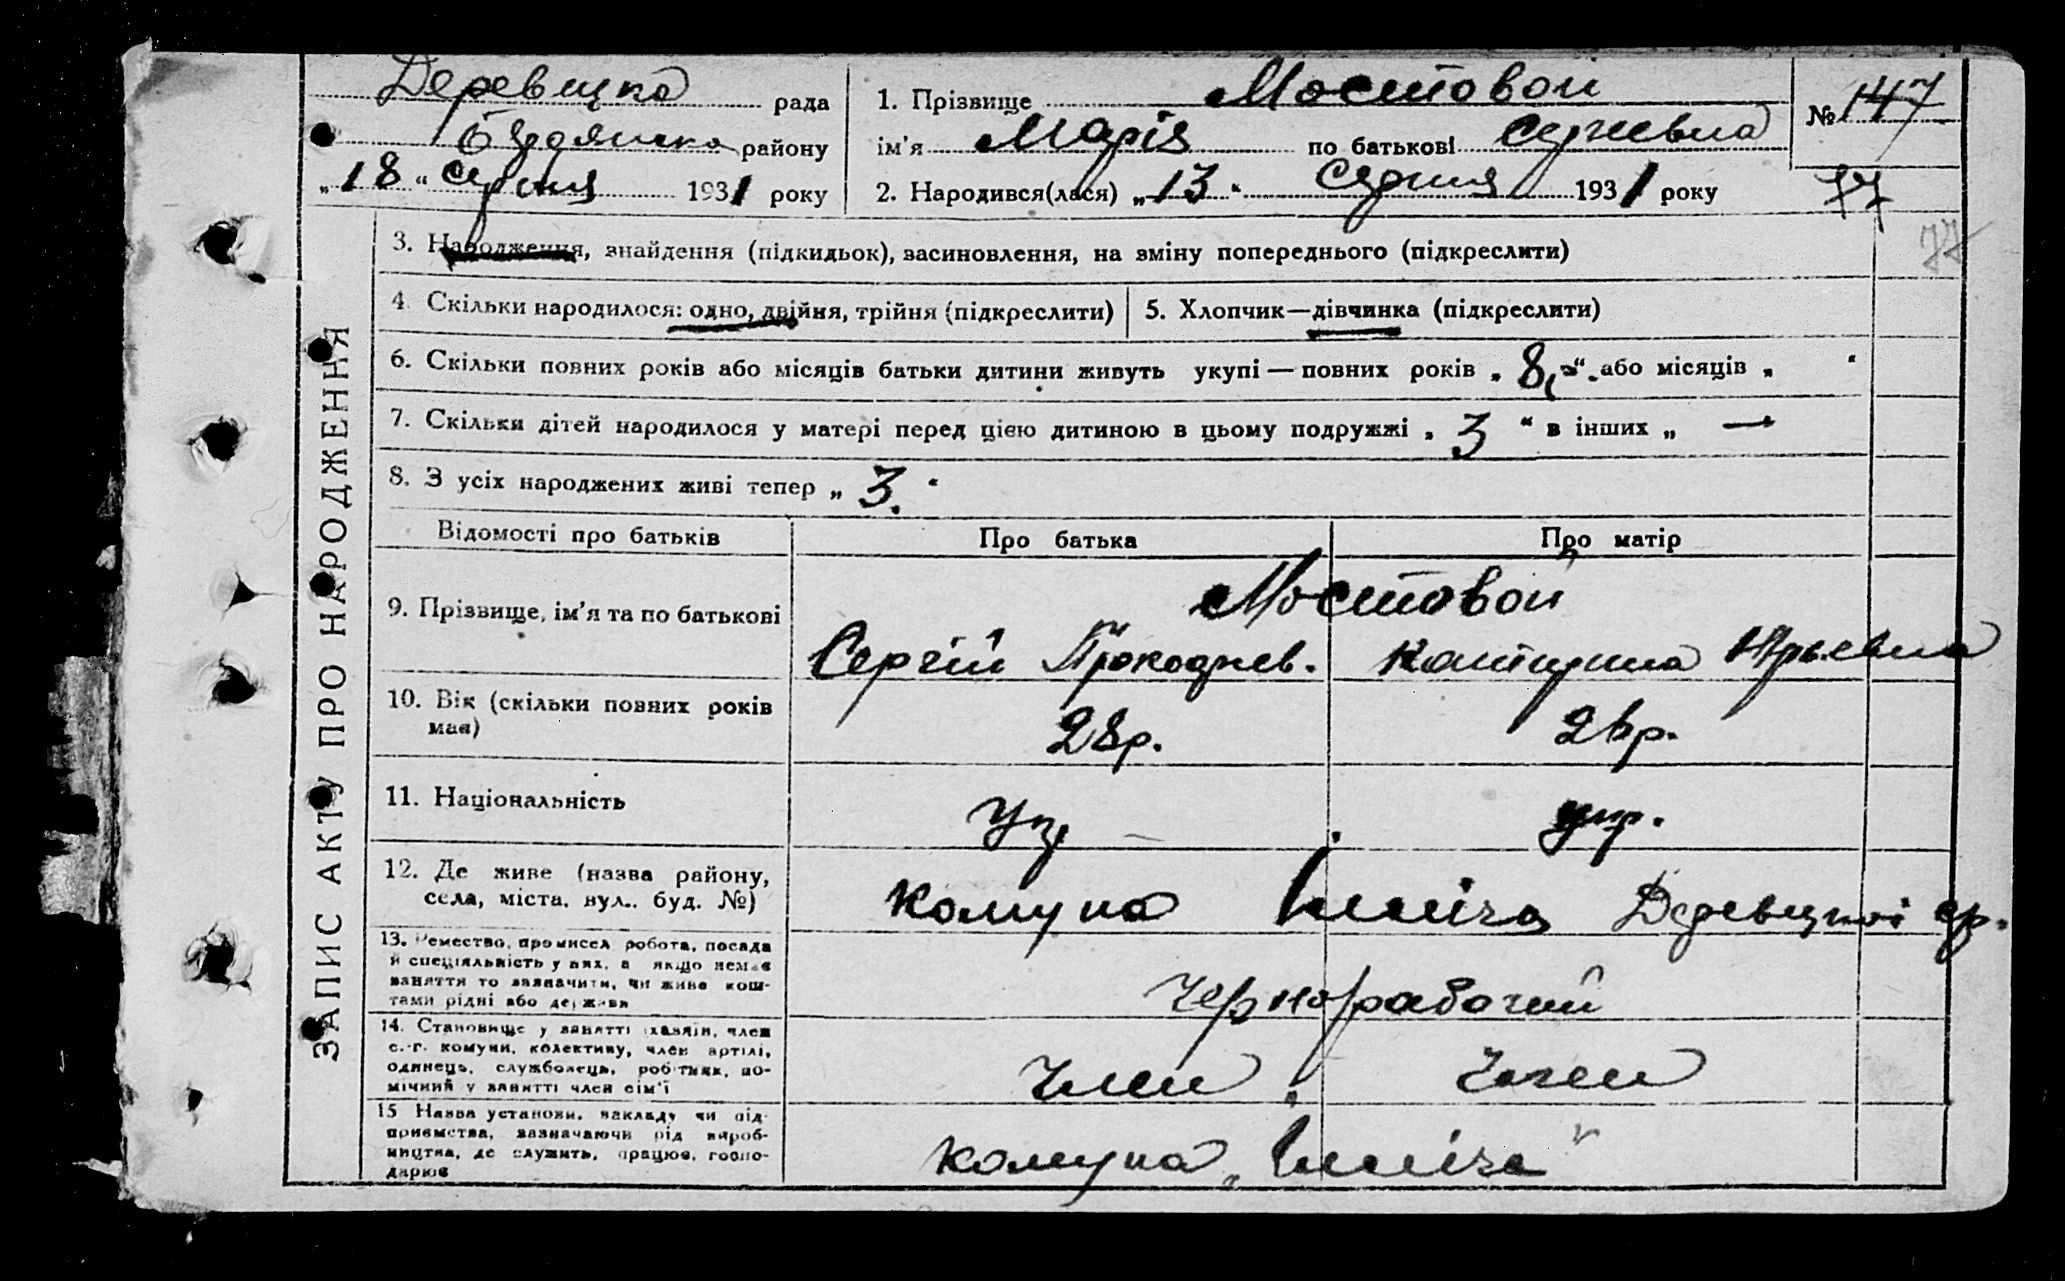 ЗАПИС АКТУ ПРО НАРОДЖЕННЯ
Деревецка рада
району
„18“ Серпня 1931 року
1. Прізвище Мостовой
ім'я Марія по батькові
2. Народився(лася) „13“ Серпня 1931 року
№ 147
77
77
3. Народження, знайдення (підкидьок), засиновлення, на зміну попереднього (підкреслити)
4. Скільки народилося: одно, двійня, трійня (підкреслити) 5. Хлопчик—дівчинка (підкреслити)
6. Скільки повних років або місяців батьки дитини живуть укупі — повних років „8“ або місяців „ “
7. Скільки дітей народилося у матері перед цією дитиною в цьому подружжі „3“ в інших „ —
8. З усіх народжених живі тепер „3.“
Відомості про батьків Про батька Про матір
9. Прізвище, ім'я та по батькові
Мостовой
Сергій Юрьевна
10. Вік (скільки повних років має)
28р. 26р.
11. Національність
укр.
12. Де живе (назва району, села, міста, вул., буд. №)
Комуна Ілліча Деревецкої ср.
13. Ремество, промисел робота, посада й спеціяльність у них, а якщо немає заняття то зазначити, чи живе коштами рідні або держави
Чернорабочий
14. Становище у занятті хазяїн, член с.-г. комуни, колективу, член артілі, одинець, службовець, робітник, помічний у занятті член сім'ї
Член Член
15 Назва установи, закладу чи підприємства, зазначаючи рід виробництва, де служить, працює, господарює
Комуна „Ілліча“